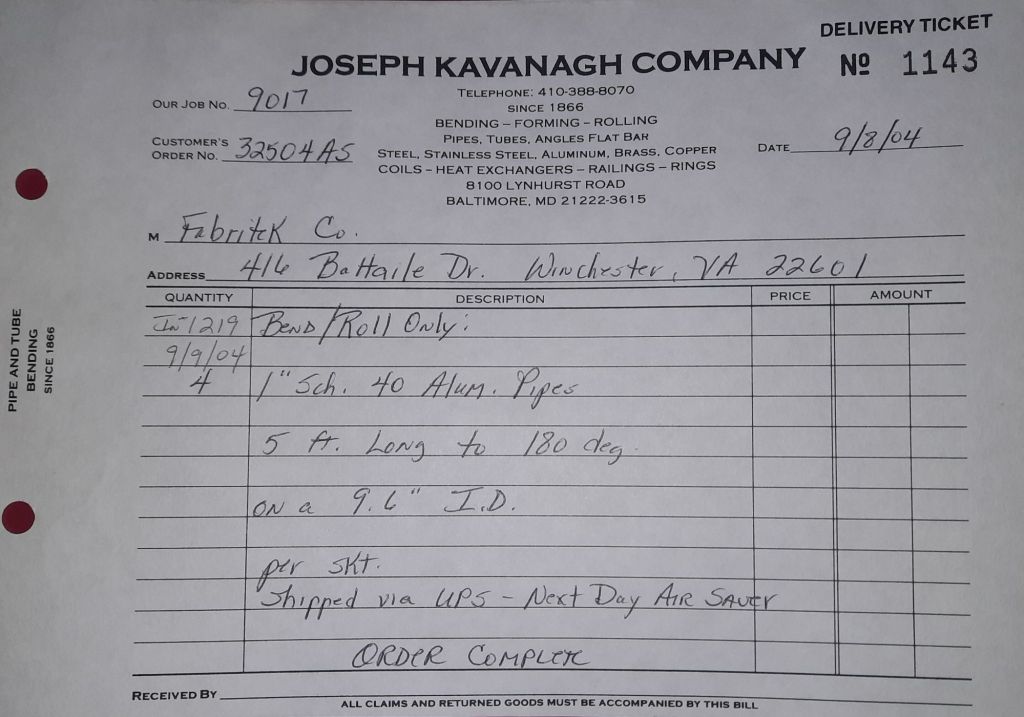 DELIVERY TICKET
JOSEPH KAVANAGH COMPANY
Nº 1143
TELEPHONE: 410-388-8070
SINCE 1866
BENDING – FORMING – ROLLING
PIPES, TUBES, ANGLES FLAT BAR
STEEL, STAINLESS STEEL, ALUMINUM, BRASS, COPPER
COILS – HEAT EXCHANGERS – RAILINGS – RINGS
8100 LYNHURST ROAD
BALTIMORE, MD 21222-3615
OUR JOB NO. 9017
CUSTOMER'S ORDER NO. 32504AS
DATE 9/8/04
M Fabritek Co.
ADDRESS 416 Battaile Dr. Winchester, VA 22601
QUANTITY DESCRIPTION PRICE AMOUNT
In-1219 Bend/Roll Only:
9/9/04
4 1" Sch. 40 Alum. Pipes
5 ft. Long to 180 deg.
on a 9.6" I.D.
per skt.
Shipped via UPS – Next Day Air Saver
ORDER COMPLETE
RECEIVED BY
ALL CLAIMS AND RETURNED GOODS MUST BE ACCOMPANIED BY THIS BILL
PIPE AND TUBE
BENDING
SINCE 1866